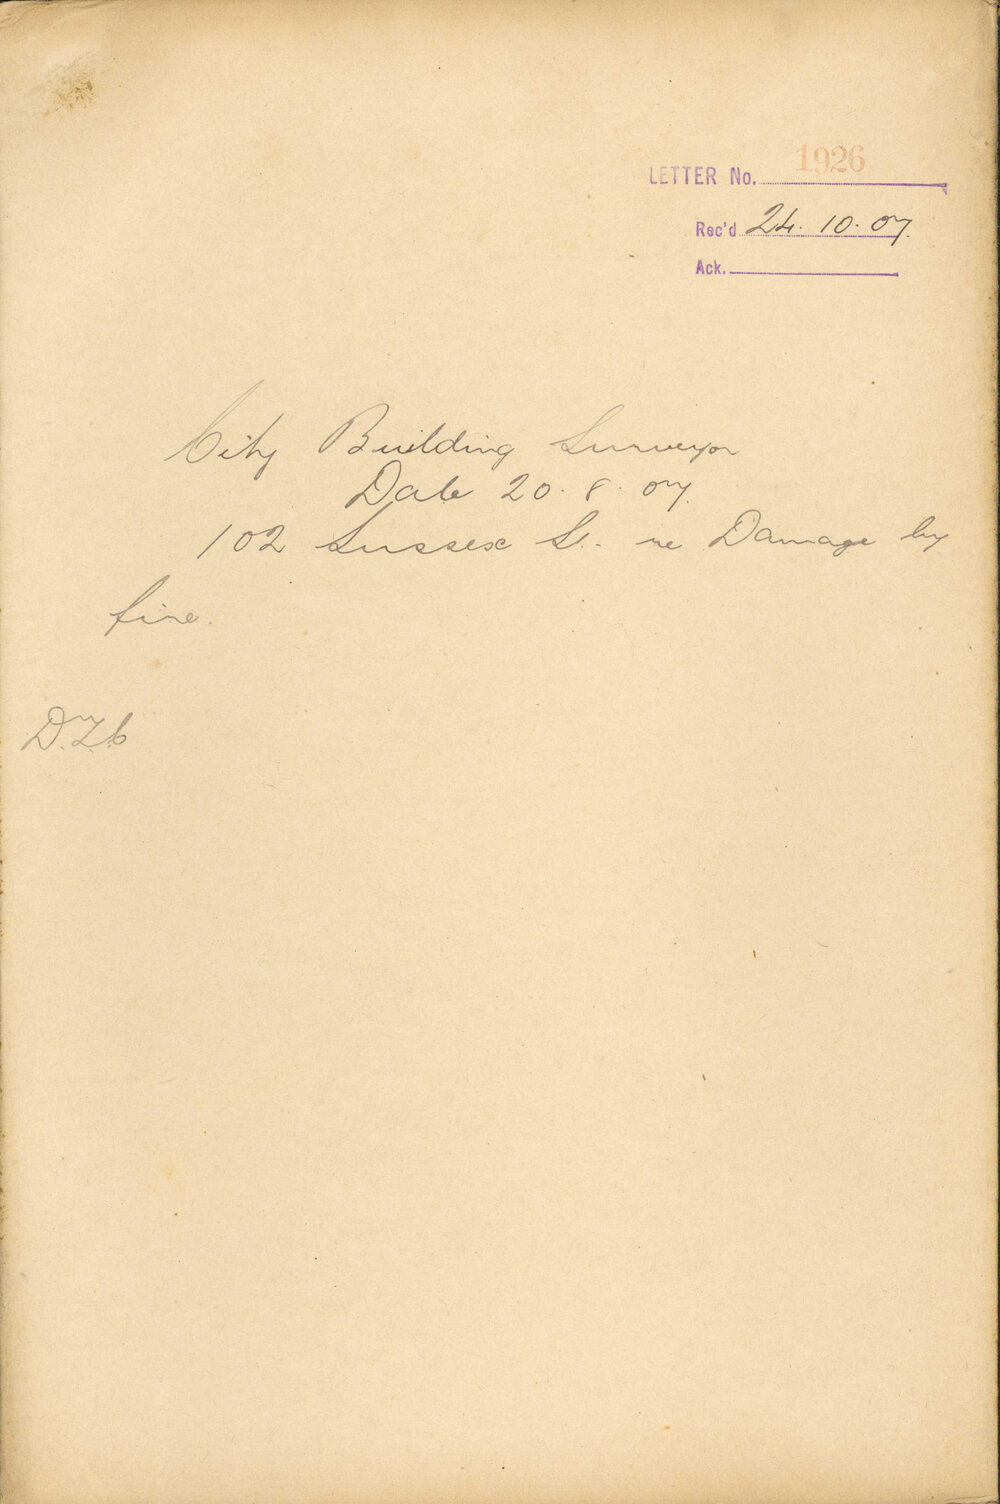 LETTER No. 1926
Rec'd 24.10.07.
Ack.
City Building Surveyor
Date 20.8.07.
102 Sussex St. re Damage by
fire.